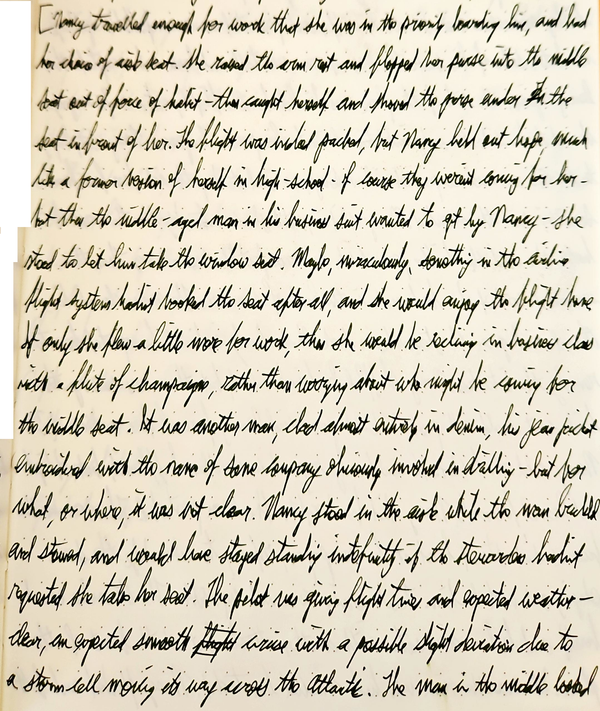 [Nancy travelled enough for work that she was in the priority boarding line, and had
her choice of aisle seat. She raised the arm rest and flopped her purse into the middle
seat out of force of habit - then caught herself and shoved the purse under the
seat in front of her. The flight was indeed packed, but Nancy held out hope, much
like a former version of herself in high-school - of course they weren't coming for her -
but then the middle-aged man in his business suit wanted to get by Nancy - she
stood to let him take the window seat. Maybe, miraculously, something in the airline
flight systems hadn't booked the seat after all, and she would enjoy the flight
If only she flew a little more for work, then she would be reclining in business class
with a flute of champagne, rather than worrying about who might be coming for
the middle seat. It was another man, clad almost entirely in denim, his jean jacket
embroidered with the name of some company obviously involved in drilling - but for
what, or where, it was not clear. Nancy stood in the aisle while the man buckled
and stowed, and would have stayed standing indefinitely if the stewardess hadn't
requested she take her seat. The pilot was giving flight times and expected weather -
clear, an expected smooth flight cruise with a possible slight deviation due to
a storm cell moving its way across the Atlantic. The man in the middle looked